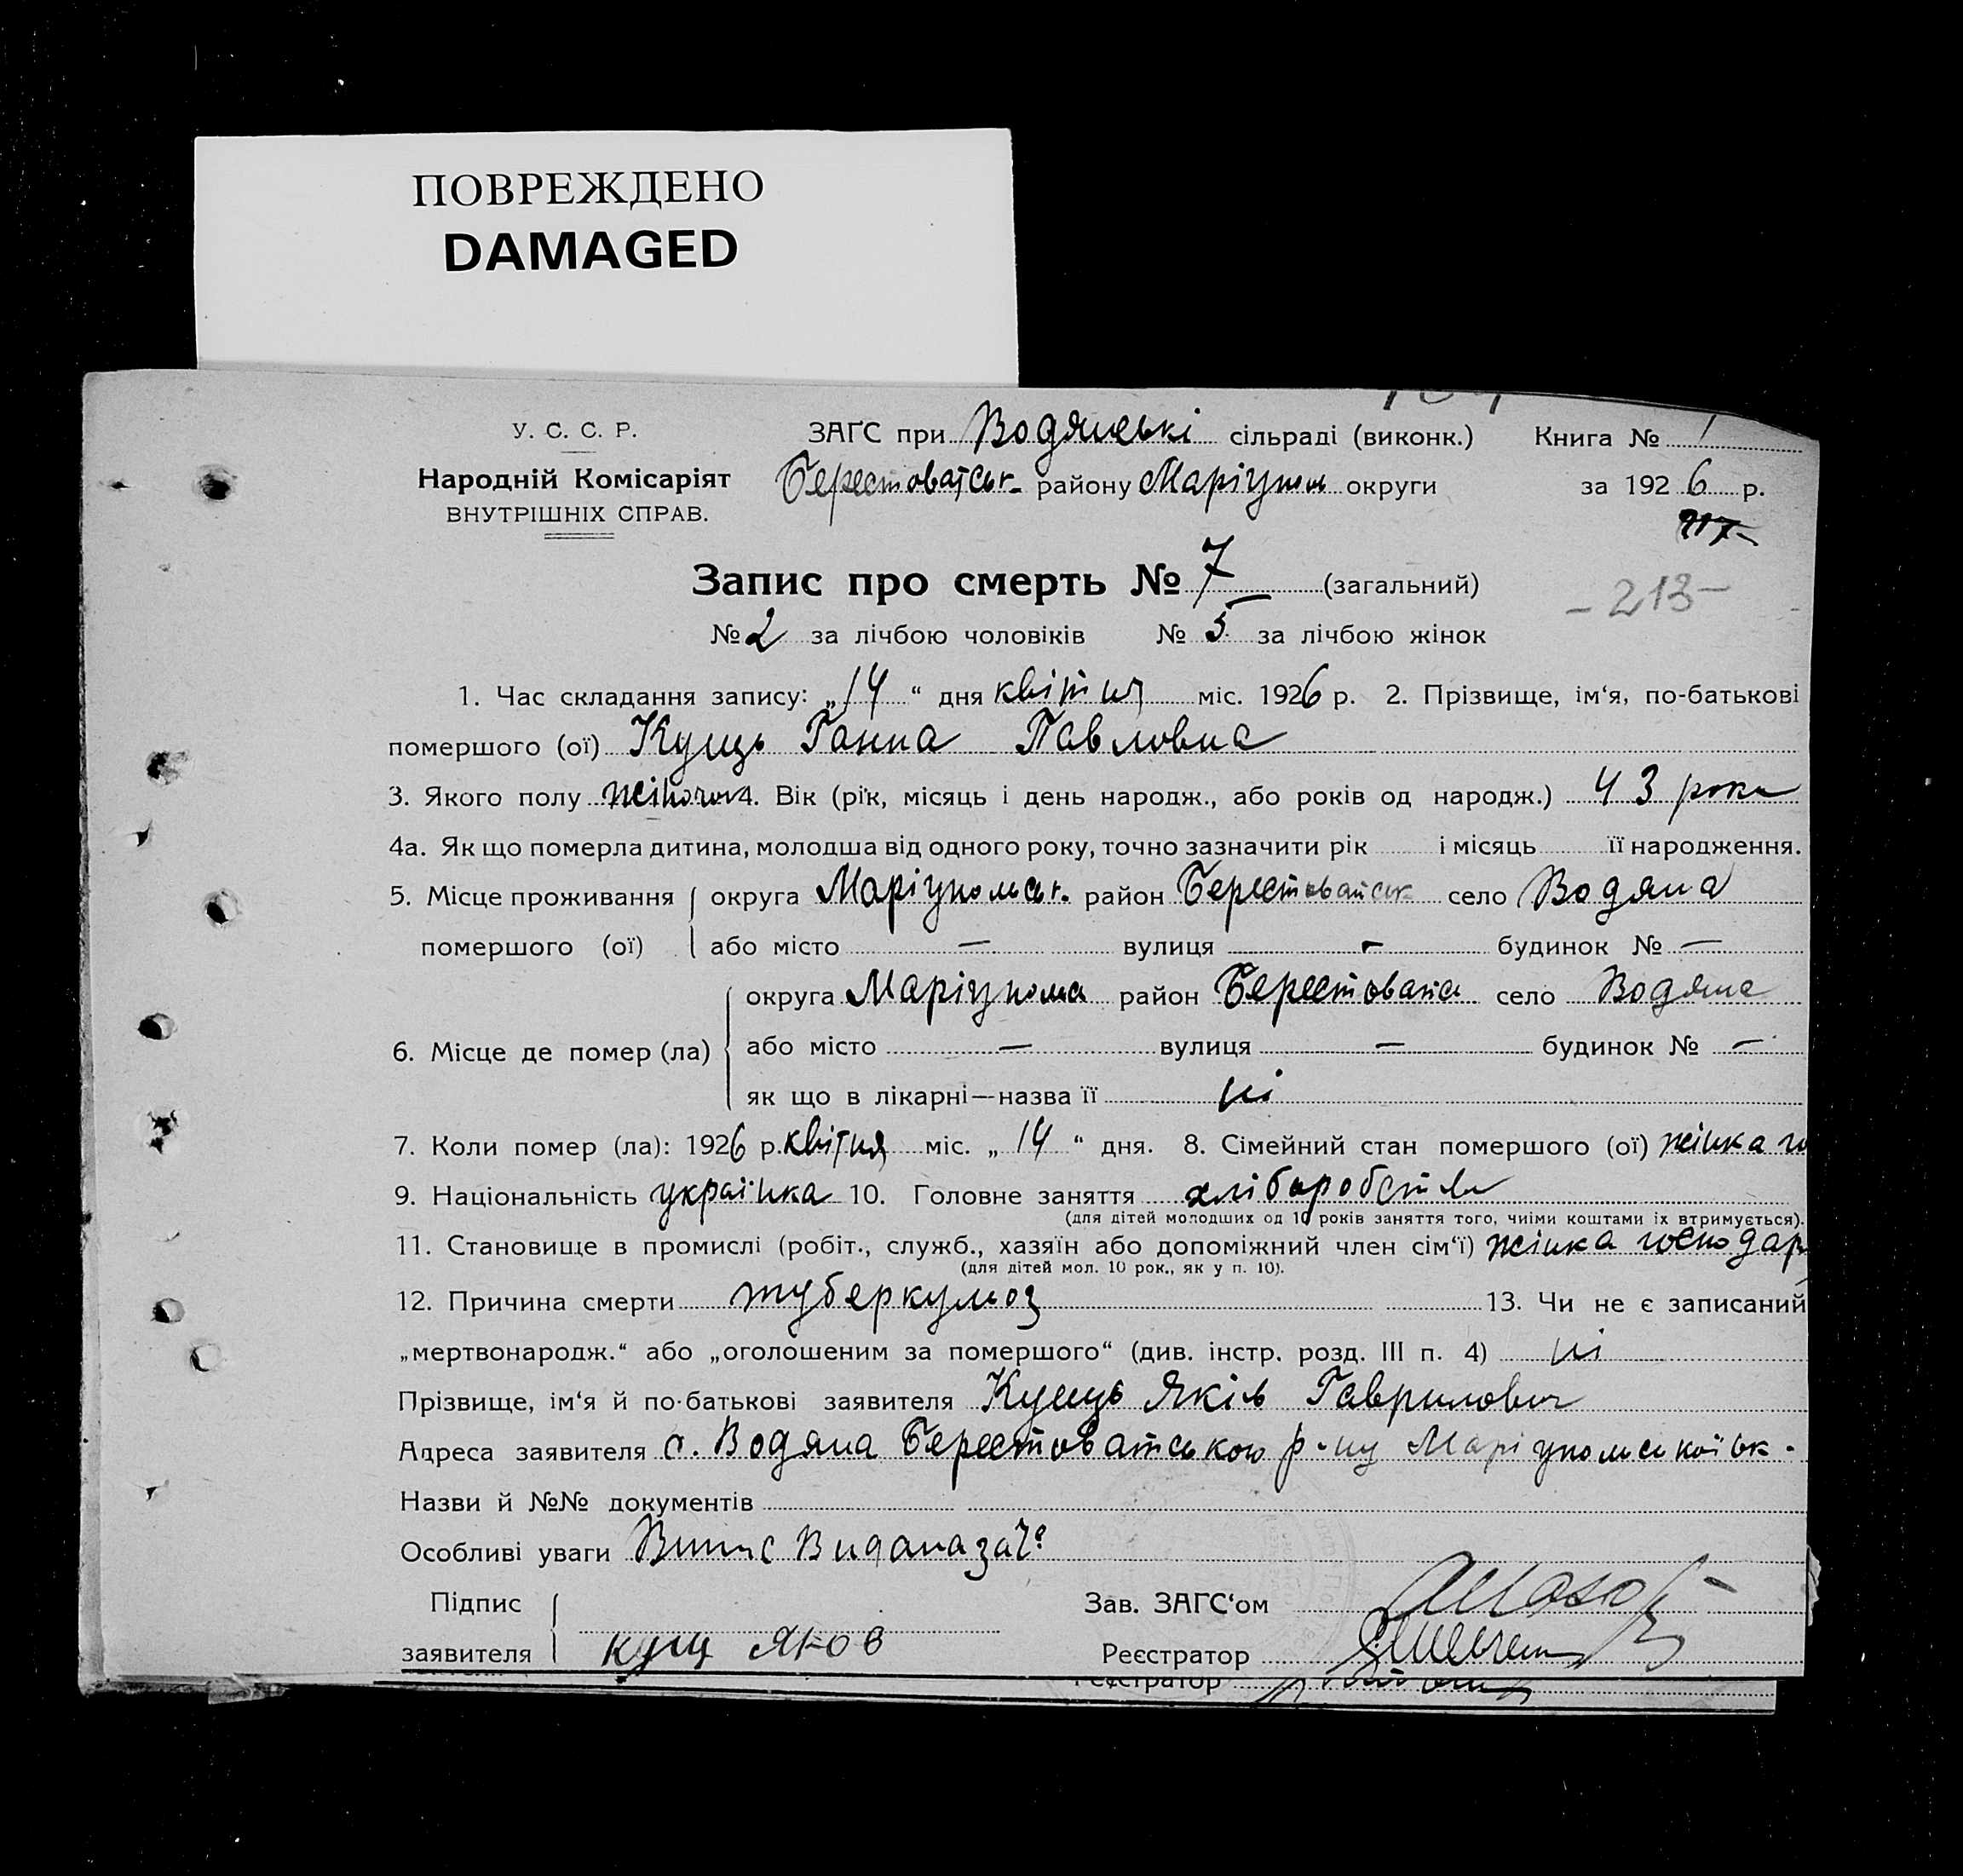 ПОВРЕЖДЕНО
DAMAGED
У. С. С. Р.
Народній Комісаріят
ВНУТРІШНІХ СПРАВ.
ЗАГС при Водянські сільраді (виконк.) Книга № 1
Берестоватськ. району Маріупол округи за 1926 р.
217
Запис про смерть № 7 (загальний)
- 213 -
№ 2 за лічбою чоловіків № 5 за лічбою жінок
1. Час складання запису: „14“ дня квітня міс. 1926 р. 2. Прізвище, ім‘я, по-батькові
помершого (ої) Кущь Ганна Павловна
3. Якого полу жіночого 4. Вік (рік, місяць і день народж., або років од народж.) 43 роки
4а. Як що померла дитина, молодша від одного року, точно зазначити рік і місяць її народження.
5. Місце проживання округа Маріупольськ. район Берестоватськ село Водяна
помершого (ої) або місто — вулиця — будинок № —
округа Маріупольс район Берестоватс село Водяна
6. Місце де помер (ла) або місто — вулиця — будинок № —
як що в лікарні—назва її ні
7. Коли помер (ла): 1926 р. квітня міс. „14“ дня. 8. Сімейний стан помершого (ої) жінка
9. Національність українка 10. Головне заняття хліборобств
(для дітей молодших од 10 років заняття того, чиїми коштами їх втримується).
11. Становище в промислі (робіт., служб., хазяїн або допоміжний член сім‘ї) жінка господар
(для дітей мол. 10 рок., як у п. 10).
12. Причина смерти туберкульоз 13. Чи не є записаний
„мертвонародж.“ або „оголошеним за помершого“ (див. інстр. розд. III п. 4) ні
Прізвище, ім‘я й по-батькові заявителя Кущь Яків Гаврилович
Адреса заявителя с. Водяна Берестоватського р-ну Маріупольської ок.
Назви й №№ документів
Особливі уваги Випис Видана за
Підпис
заявителя кущ Яков
Зав. ЗАГС‘ом
Реєстратор
Реєстратор